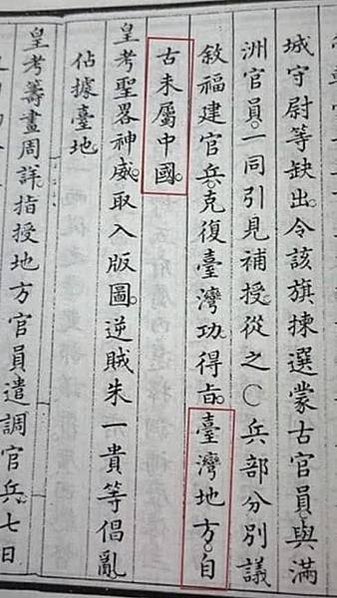 城守尉等缺出。令該旗揀選蒙古官員。與滿
洲官員。一同引見補授。從之○兵部分別議
敘福建官兵。克復臺灣功。得旨。臺灣地方。自
古未屬中國。
皇考聖畧神威。取入版圖。逆賊朱一貴等倡亂
佔據臺地
皇考籌畫周詳。指授地方官員。遣調官兵。七日